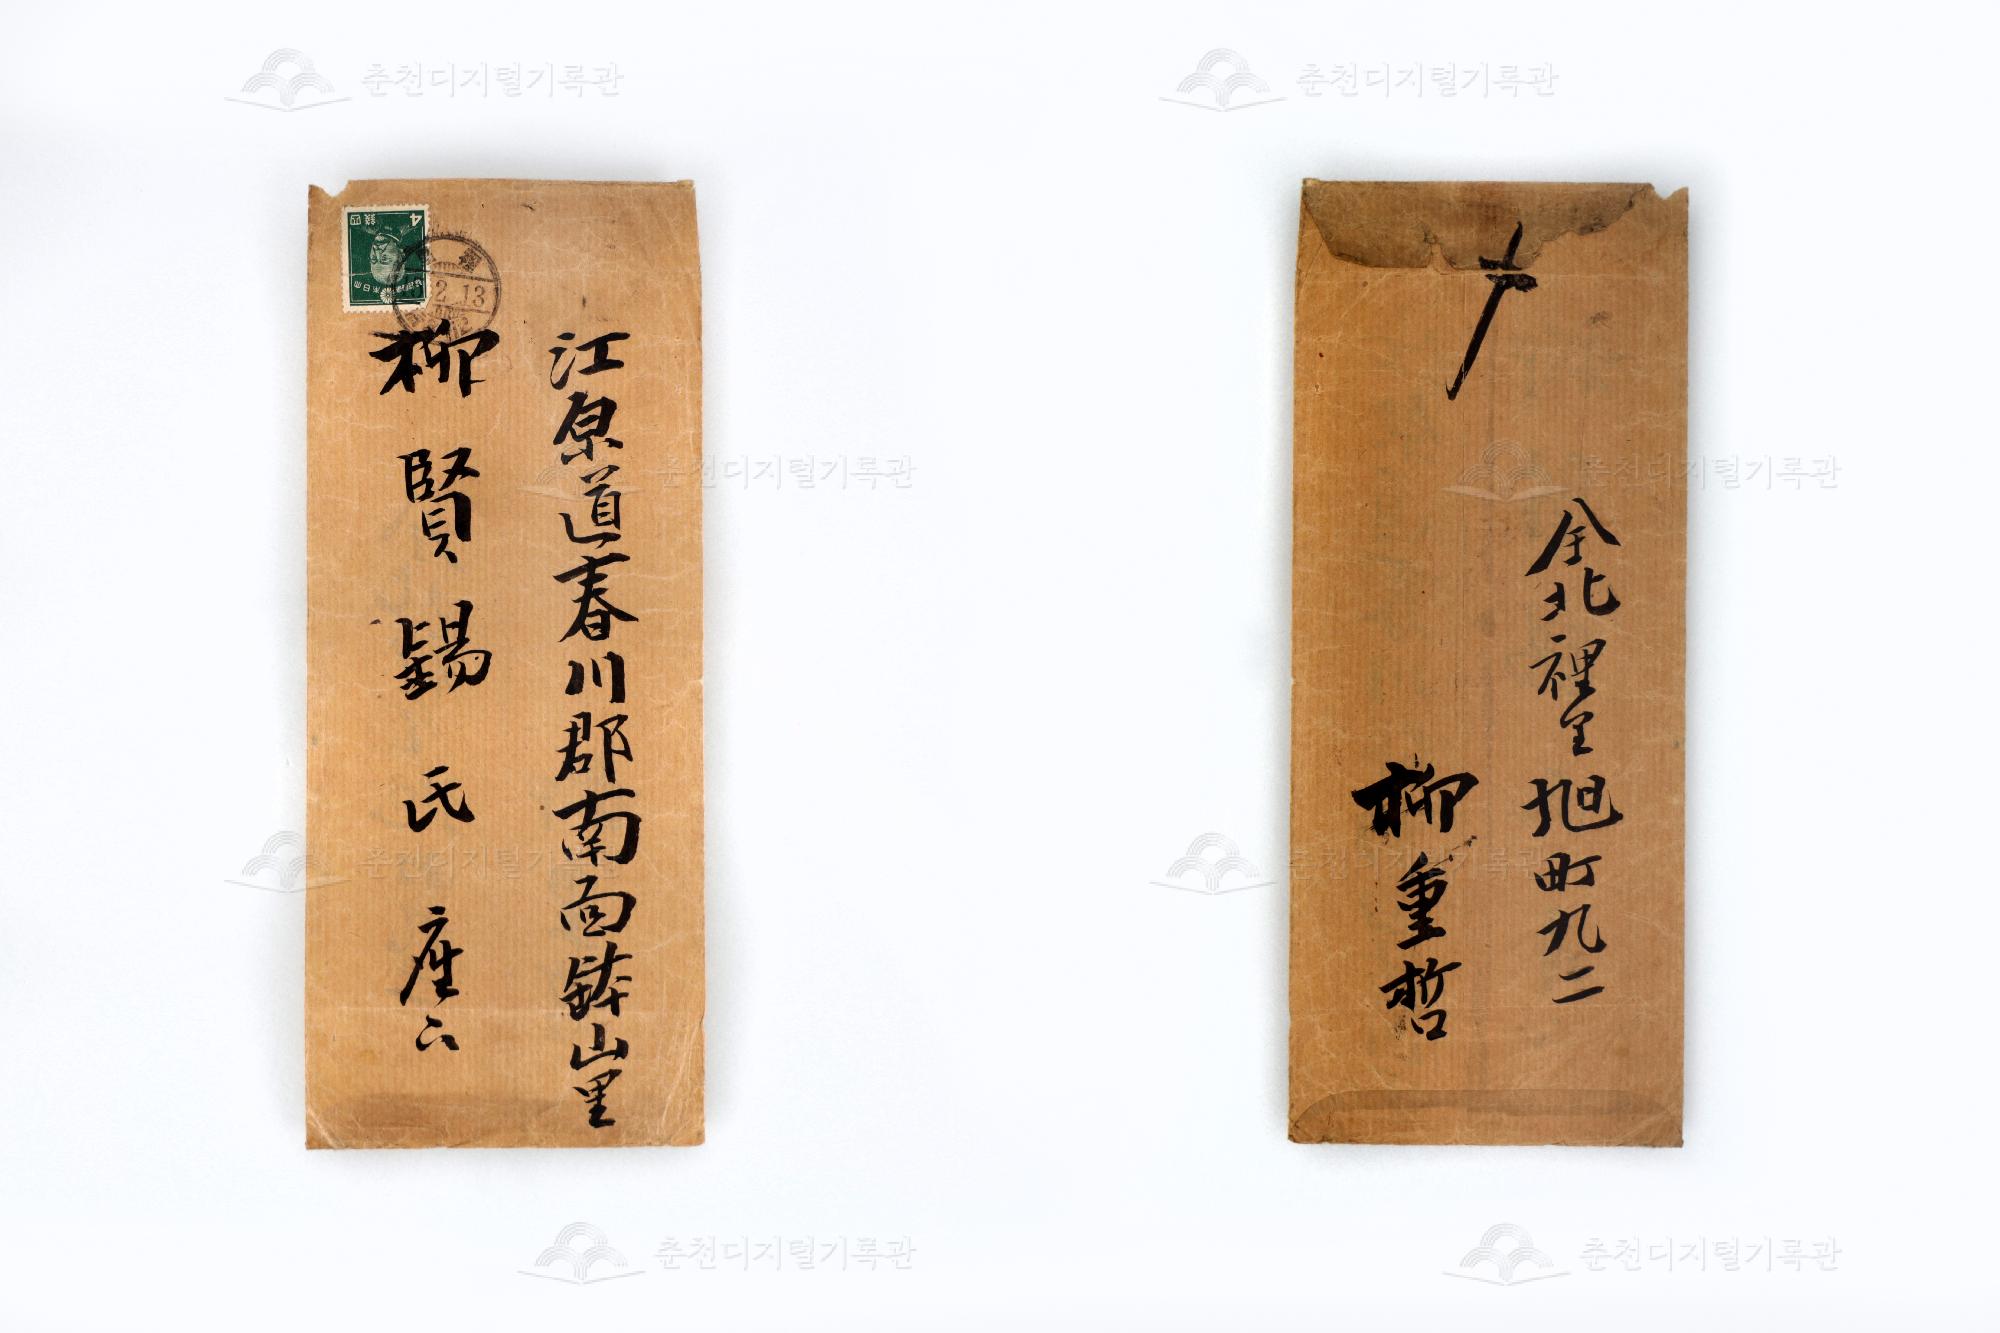 춘천디지털기록관
춘천디지털기록관
4
錢四
2.13
江原道春川郡南面鉢山里
柳賢錫氏座下
춘천디지털기록관
춘천디지털기록관
全北裡里旭町九二
柳重哲
춘천디지털기록관
춘천디지털기록관
춘천디지털기록관
춘천디지털기록관